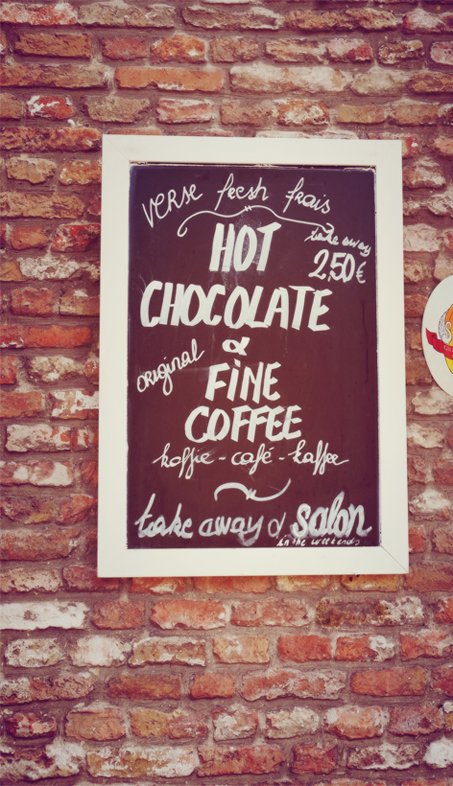 verse fresh frais
take away
2,50€
HOT
CHOCOLATE
&
original
FiNE
COFFEE
koffie - café - kaffee
take away & salon
in the weekends